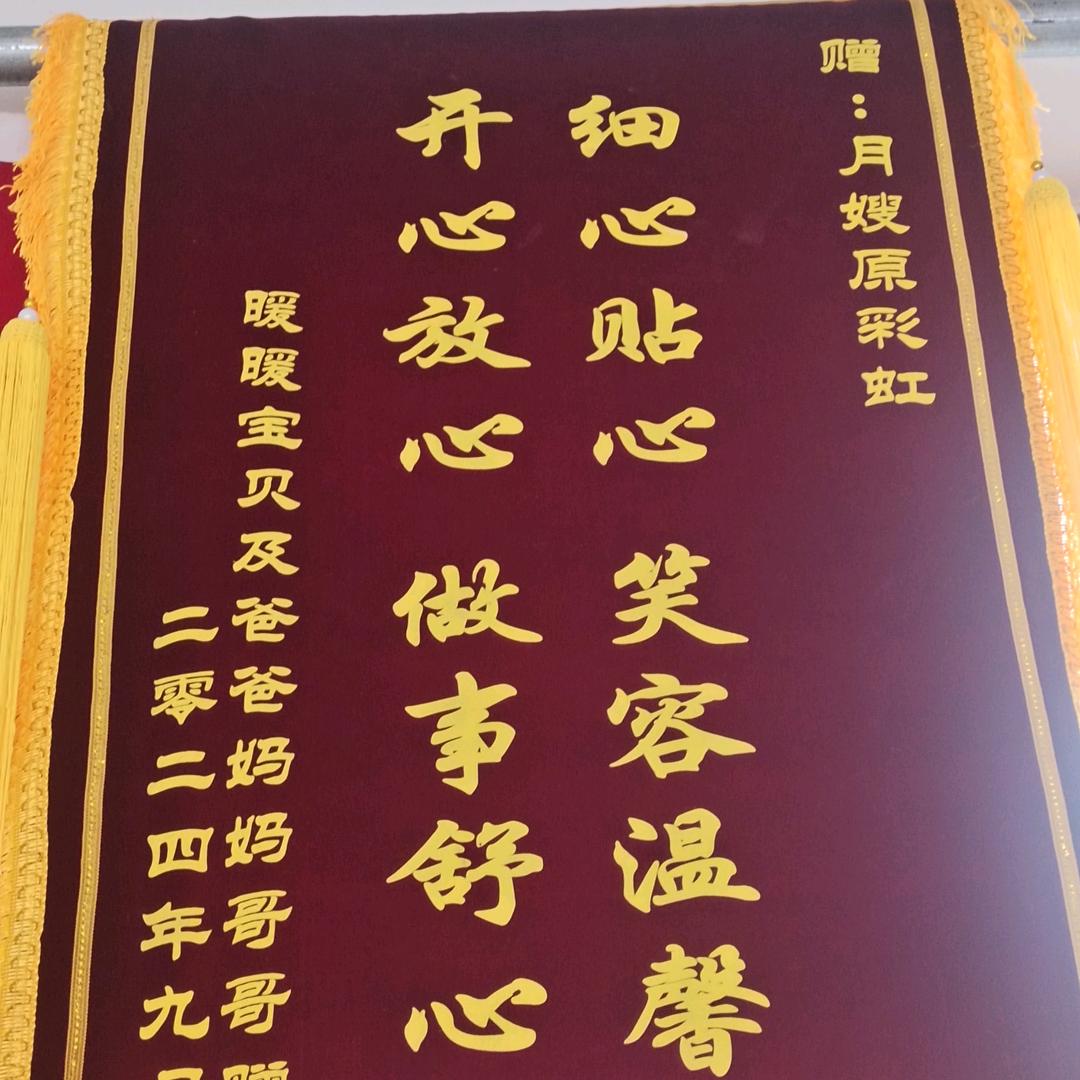 赠：月嫂原彩虹
细心贴心 笑容温馨
开心放心 做事舒心
暖暖宝贝及爸爸妈妈哥哥赠
二零二四年九月